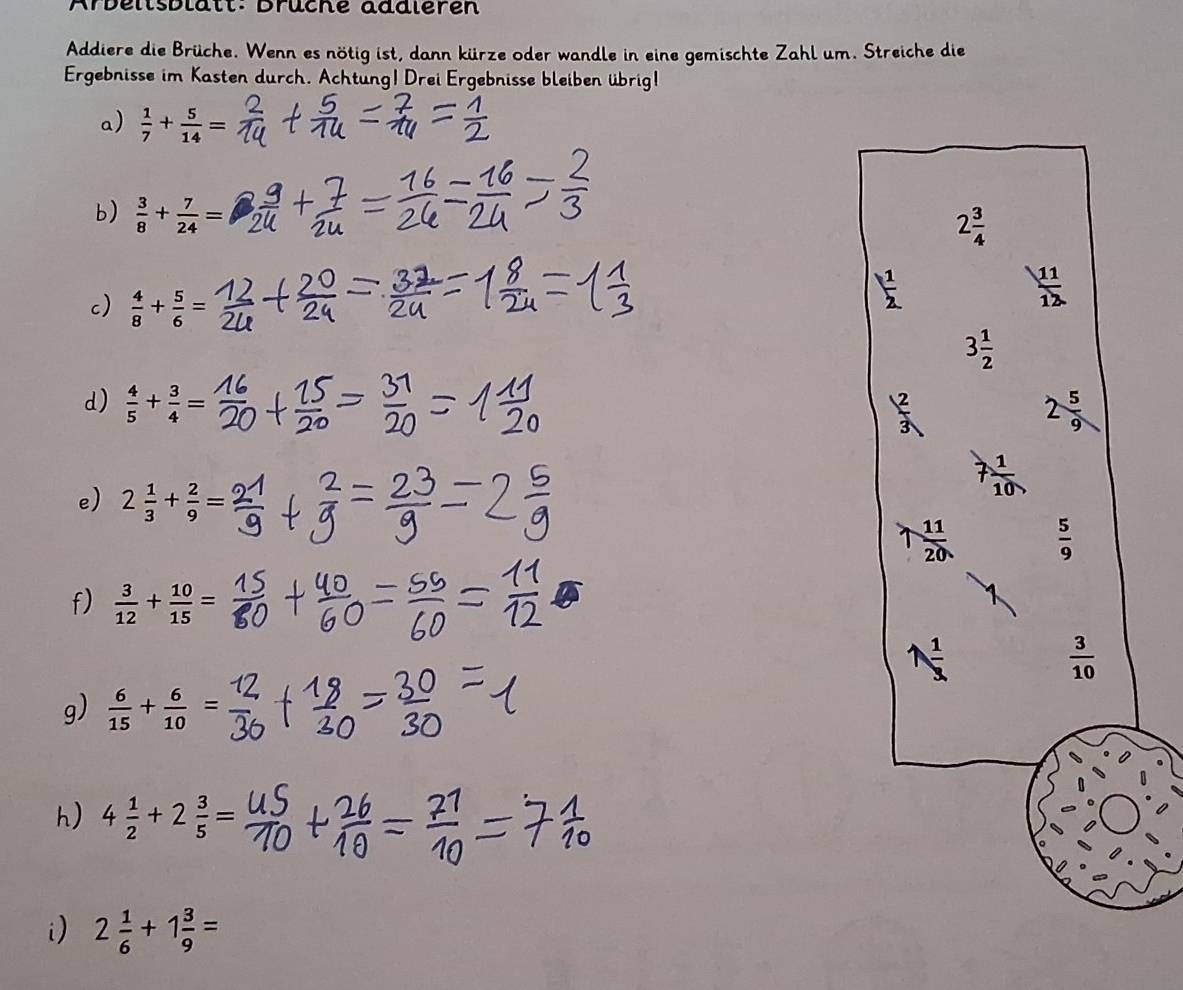 Arbeitsblatt: Brüche addieren
Addiere die Brüche. Wenn es nötig ist, dann kürze oder wandle in eine gemischte Zahl um. Streiche die
Ergebnisse im Kasten durch. Achtung! Drei Ergebnisse bleiben übrig!
a) 1/7 + 5/14 = 2/14 + 5/14 = 7/14 = 1/2
b) 3/8 + 7/24 = 9/24 + 7/24 = 16/24 = 16/24 = 2/3
c) 4/8 + 5/6 = 12/24 + 20/24 = 32/24 = 1 8/24 = 1 1/3
d) 4/5 + 3/4 = 16/20 + 15/20 = 31/20 = 1 11/20
e) 2 1/3 + 2/9 = 21/9 + 2/9 = 23/9 = 2 5/9
f) 3/12 + 10/15 = 15/60 + 40/60 = 55/60 = 11/12
g) 6/15 + 6/10 = 12/30 + 18/30 = 30/30 = 1
h) 4 1/2 + 2 3/5 = 45/10 + 26/10 = 71/10 = 7 1/10
i) 2 1/6 + 1 3/9 =
2 3/4
1/2 11/12
3 1/2
2/3 2 5/9
7 1/10
1 11/20 5/9
1
1 1/3 3/10